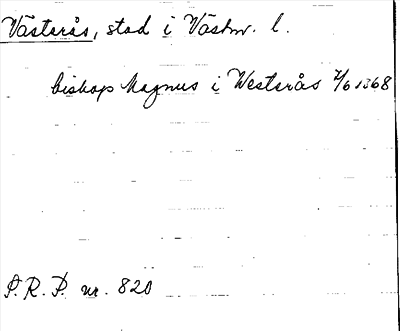 Västerås, stad i Västm. l.
biskop Magnus i Westerås 7/6 1368
S.R.P. nr. 820